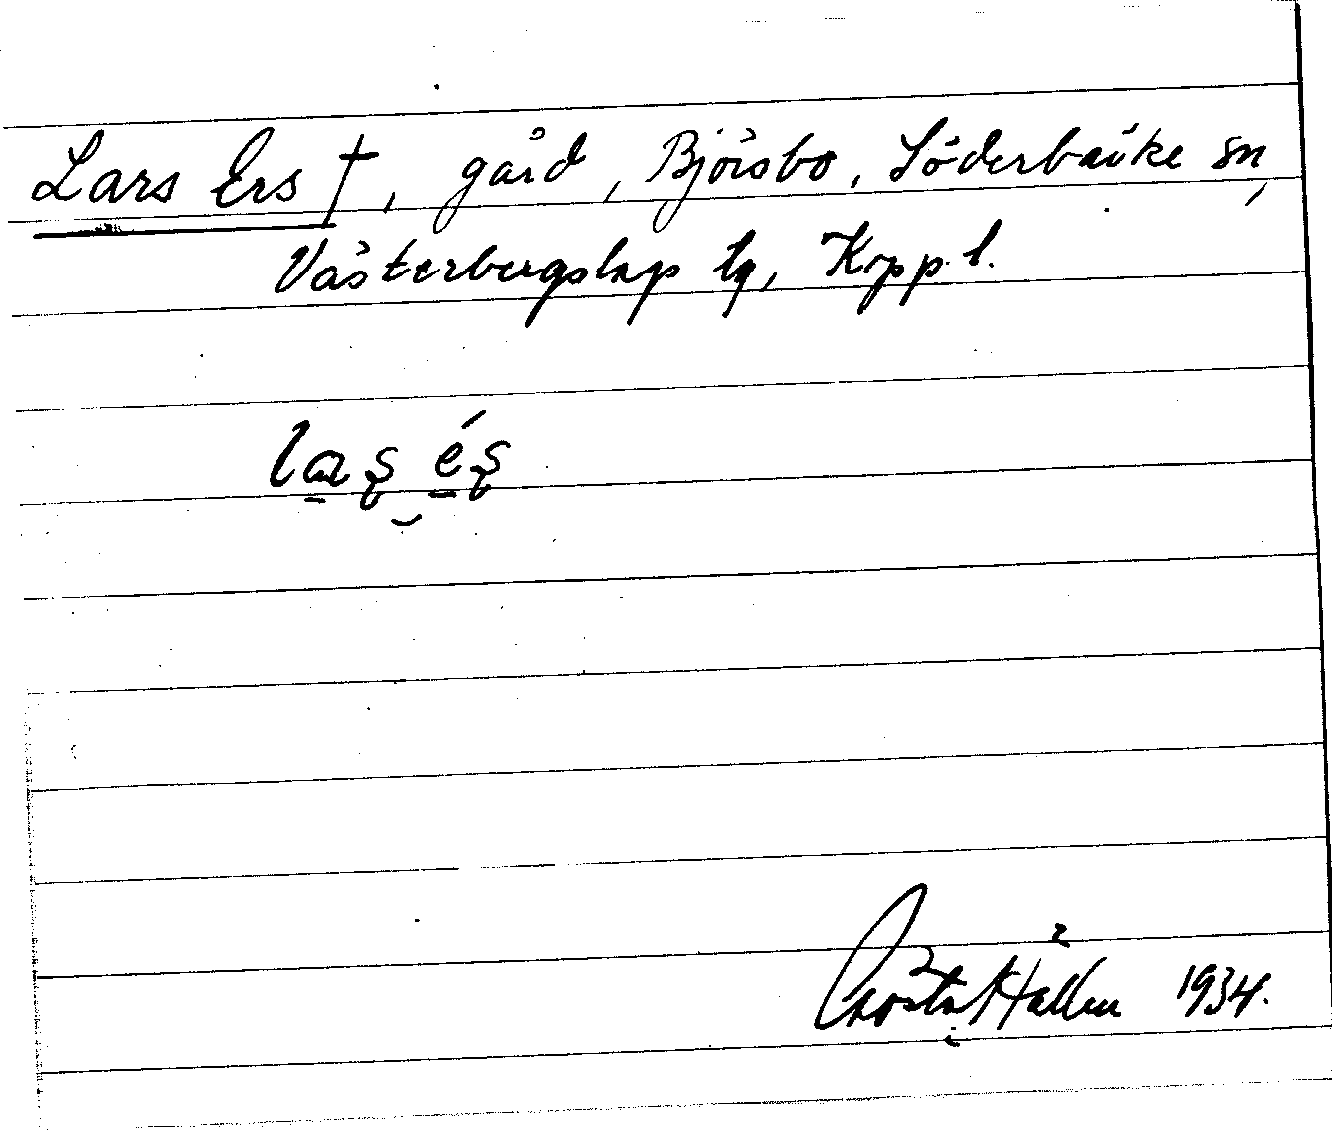 Lars Ers †, gård, Björsbo, Söderbärke sn,
Västerbergslags tg, Kopp. l.
la̲ʂ‿é̲ʂ
Gösta Hallen 1934.